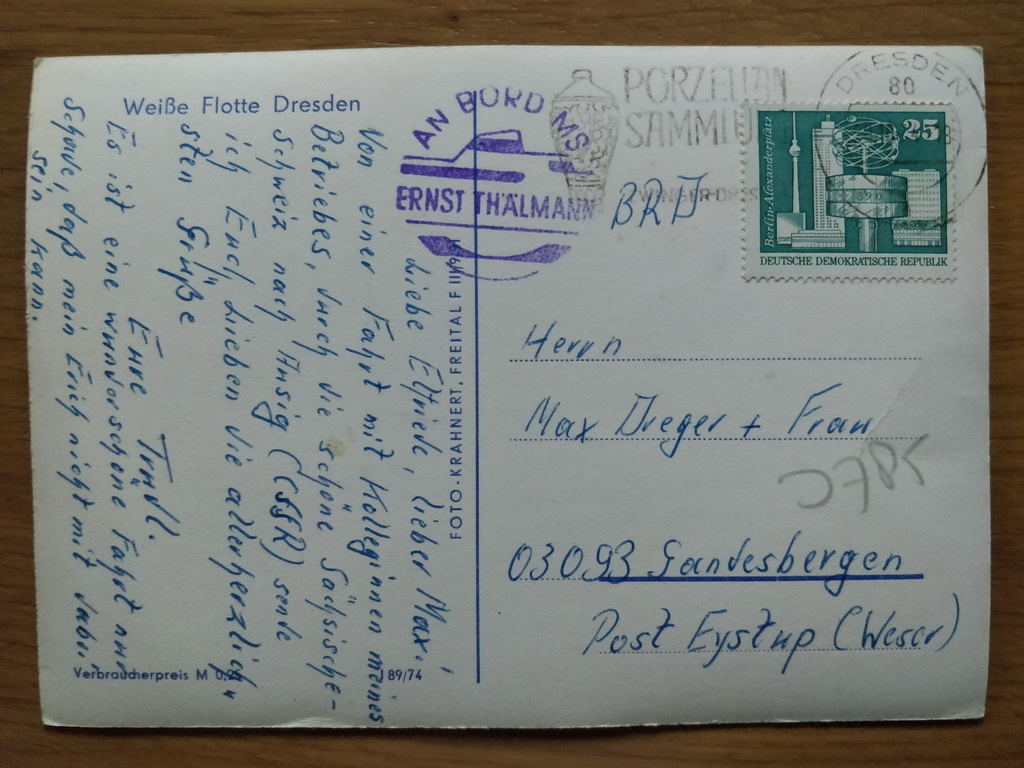 Weiße Flotte Dresden
AN BORD MS
ERNST THÄLMANN
PORZELLAN
SAMMLU
ZWINGER DRES
DRESDEN
80
25
Berlin-Alexanderplatz
DEUTSCHE DEMOKRATISCHE REPUBLIK
BRD
Herrn
Max Dreger + Frau
03093 Gandesbergen
Post Eystup (Weser)
Liebe Elfriede, lieber Max!
Von einer Fahrt mit Kolleginnen meines
Betriebes, durch die schöne Sächsische-
Schweiz nach Aussig (ČSSR) sende
ich Euch Lieben die allerherzlich-
sten Grüße
Eure Trudl.
Es ist eine wunderschöne Fahrt nur
Schade, daß mein Erich nicht mit dabei
sein kann.
FOTO-KRAHNERT, FREITAL F III/9
Verbraucherpreis M 0,
89/74